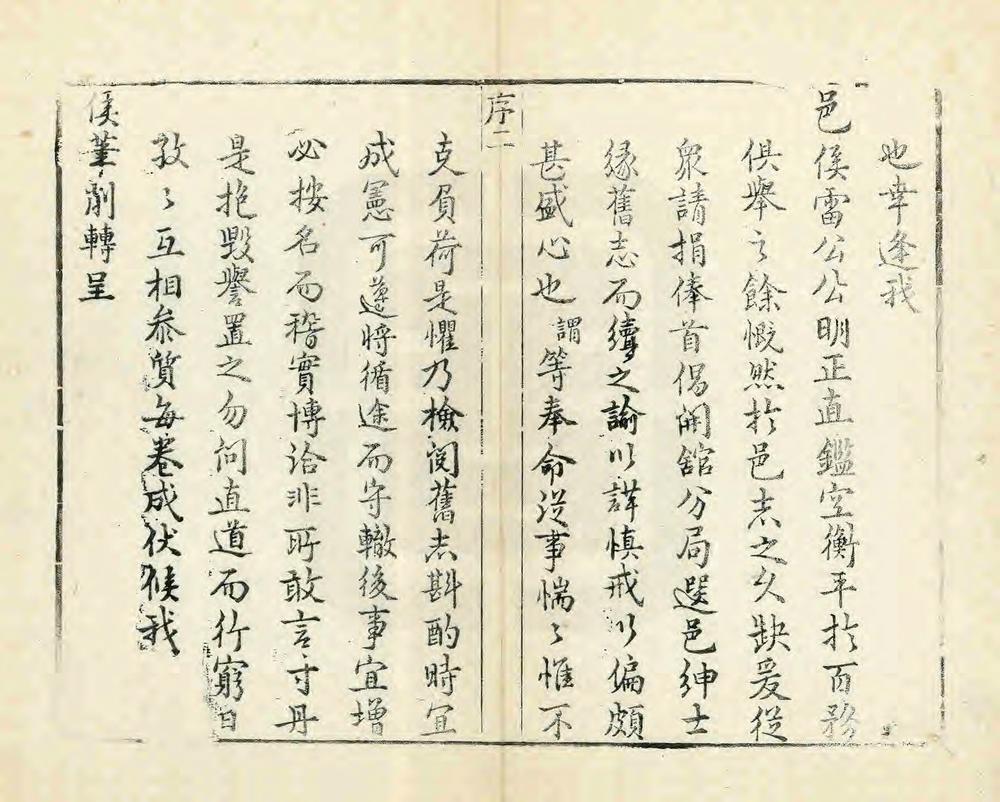 也幸逢我
邑侯雷公公明正直鑑空衡平於百務
俱舉之餘慨然於邑志之久缺爰從
衆請捐俸首倡開舘分局選邑紳士
緣舊志而續之諭以詳慎戒以偏頗
甚盛心也謂等奉命從事惴〻惟不
序二
克負荷是懼乃檢閱舊志斟酌時宜
成憲可遵將循途而守轍後事宜增
必按名而稽實博洽非所敢言寸丹
是抱毀譽置之勿問直道而行窮日
孜〻互相叅質每卷成伏候我
侯筆削轉呈